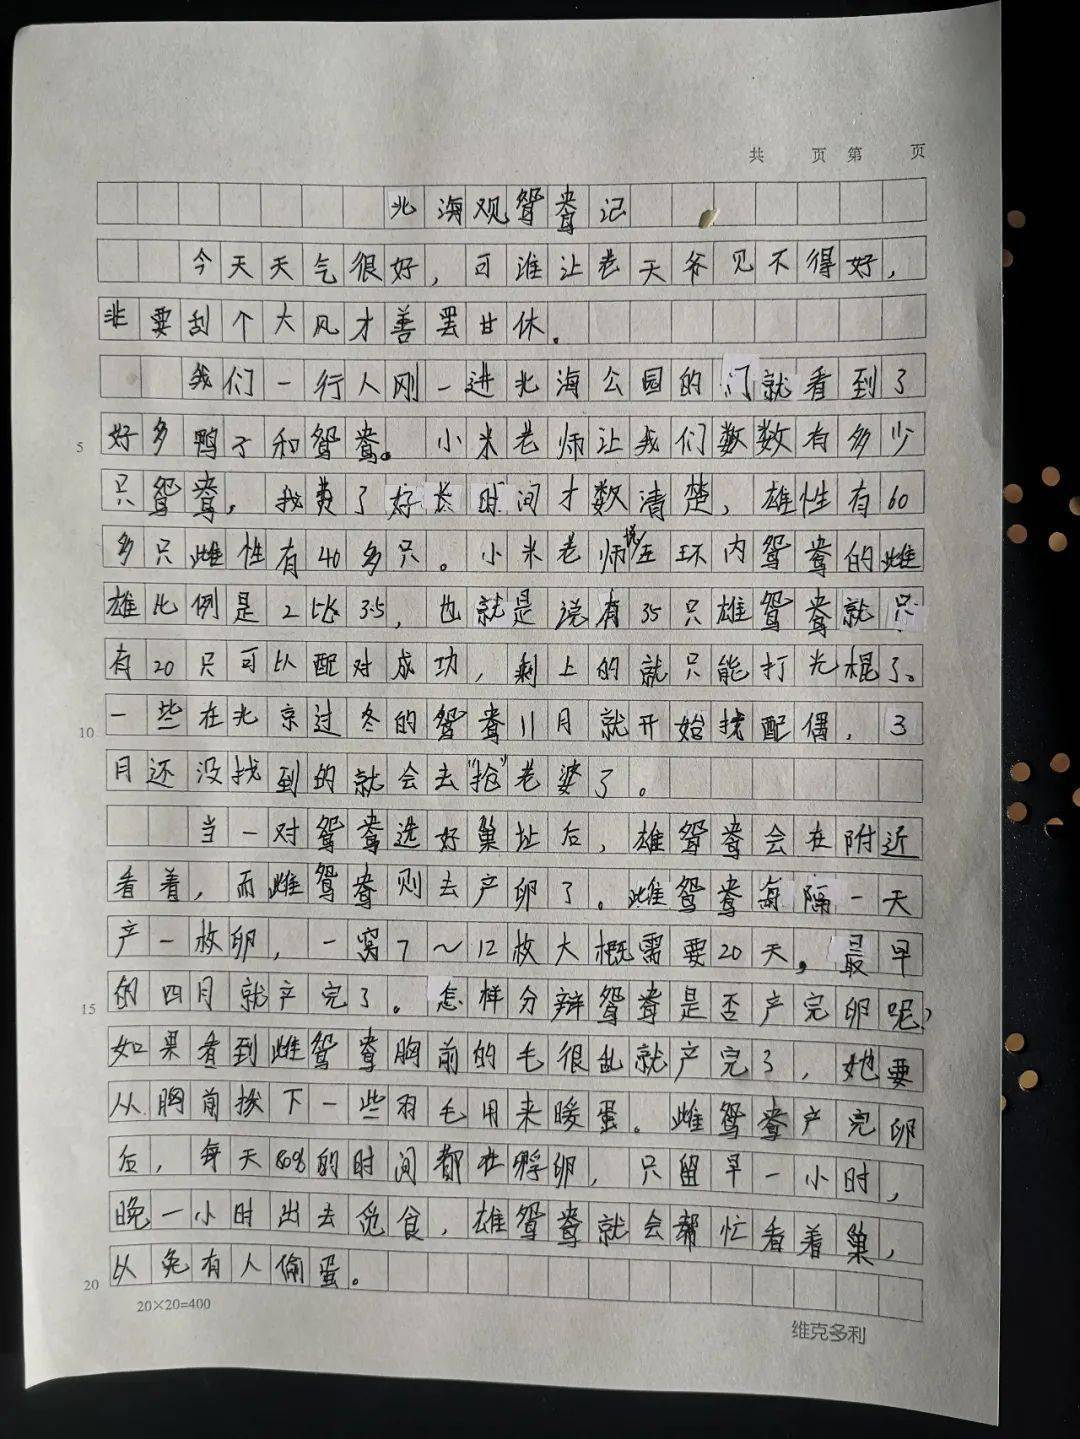 共 页 第 页
北海观鸳鸯记
今天天气很好，可谁让老天爷见不得好，
非要刮个大风才善罢甘休。
我们一行人刚一进北海公园的门就看到了
5 好多鸭子和鸳鸯。小米老师让我们数数有多少
只鸳鸯，我费了好长时间才数清楚，雄性有60
多只雌性有40多只。小米老师说五环内鸳鸯的雌
雄比例是2比3.5，也就是说有35只雄鸳鸯就只
有20只可以配对成功，剩下的就只能打光棍了。
10 一些在北京过冬的鸳鸯11月就开始找配偶，3
月还没找到的就会去“抢”老婆了。
当一对鸳鸯选好巢址后，雄鸳鸯会在附近
看着，而雌鸳鸯则去产卵了。雌鸳鸯每隔一天
产一枚卵，一窝7～12枚大概需要20天，最早
15 的四月就产完了。怎样分辩鸳鸯是否产完卵呢？
如果看到雌鸳鸯胸前的毛很乱就产完了，她要
从胸前拔下一些羽毛用来暖蛋。雌鸳鸯产完卵
后，每天80%的时间都在孵卵，只留早一小时，
晚一小时出去觅食，雄鸳鸯就会帮忙看着巢，
20 以免有人偷蛋。
20×20=400
维克多利